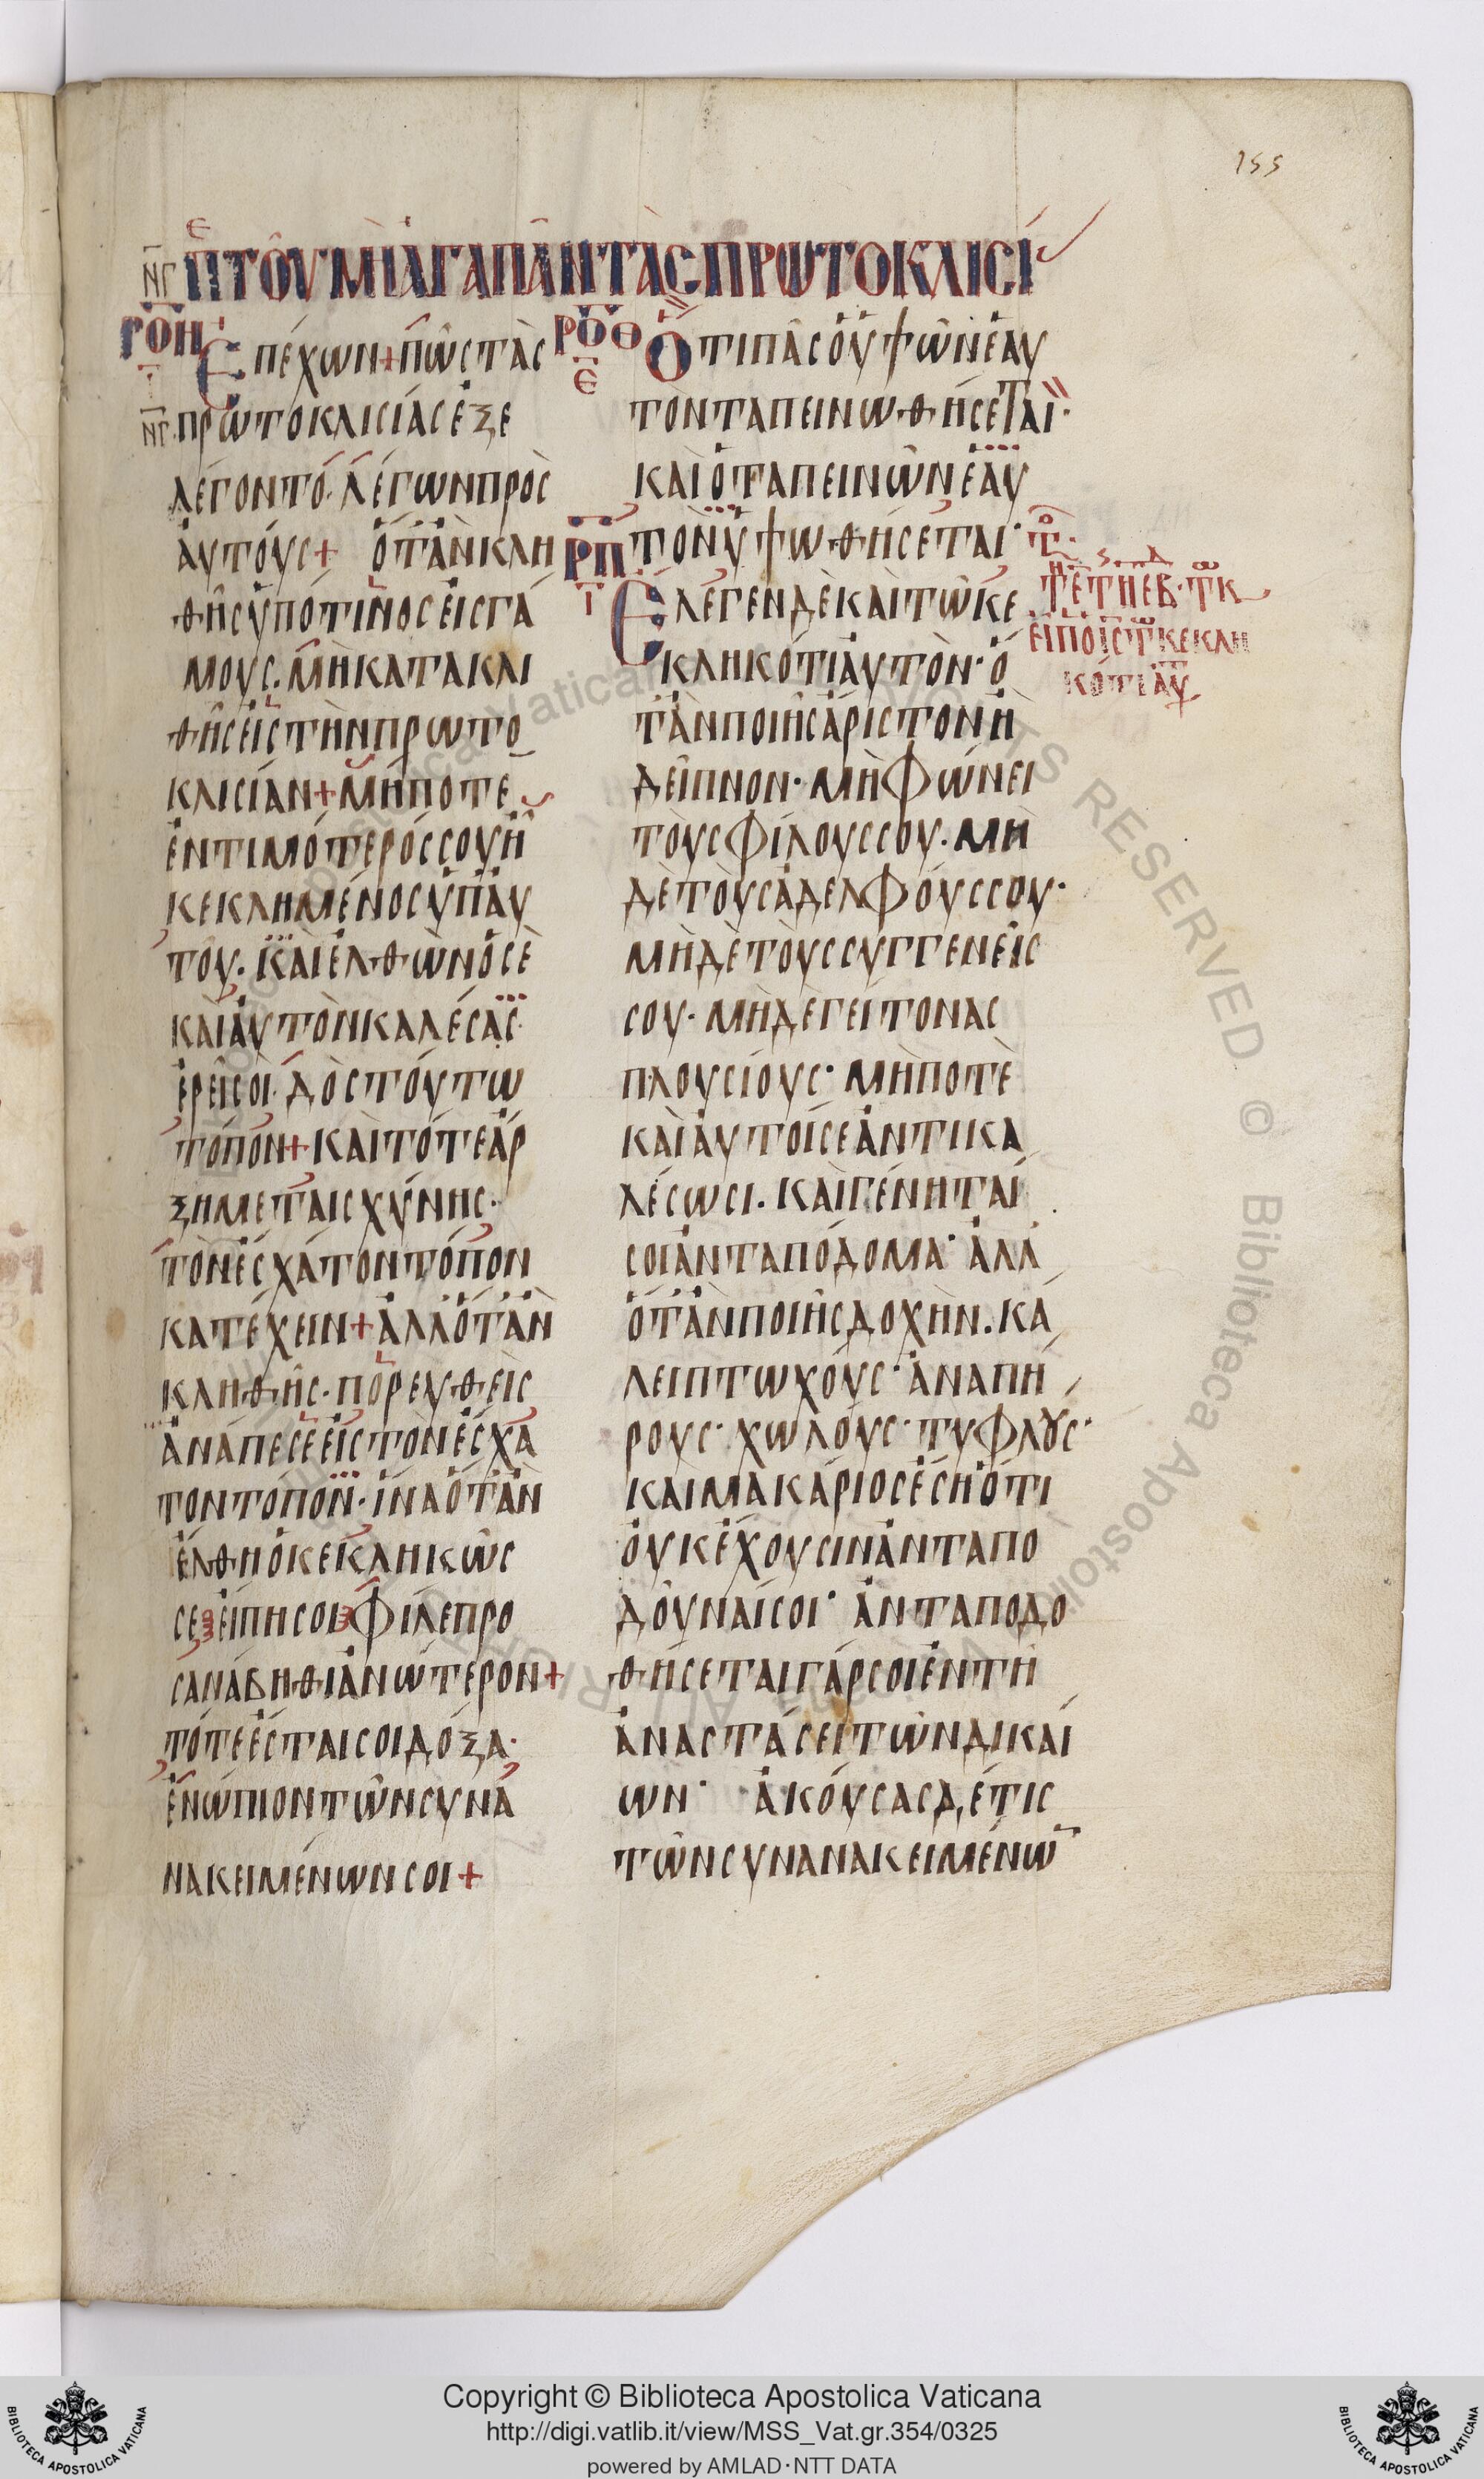 155
ΝΓ ΠΤΟΥΜΗΑΓΑΠΑΝΤΑΣΠΡΩΤΟΚΛΙΣΙ
ΡΟΗ
Ι
ΕΠΕΧΩΝ+ΠΩΣΤΑΣ
ΝΓ ΠΡΩΤΟΚΛΙΣΙΑΣΕΞΕ
ΛΕΓΟΝΤΟ·ΛΕΓΩΝΠΡΟΣ
ΑΥΤΟΥΣ+ ΟΤΑΝΚΛΗ
ΘΗΣΥΠΟΤΙΝΟΣΕΙΣΓΑ
ΜΟΥΣ·ΜΗΚΑΤΑΚΛΙ
ΘΗΣΕΙΣΤΗΝΠΡΩΤΟ
ΚΛΙΣΙΑΝ+ΜΗΠΟΤΕ
ΕΝΤΙΜΟΤΕΡΟΣΣΟΥΗ
ΚΕΚΛΗΜΕΝΟΣΥΠΑΥ
ΤΟΥ·ΚΑΙΕΛΘΩΝΟΣΕ
ΚΑΙΑΥΤΟΝΚΑΛΕΣΑΣ·
ΕΡΕΙΣΟΙ·ΔΟΣΤΟΥΤΩ
ΤΟΠΟΝ+ΚΑΙΤΟΤΕΑΡ
ΞΗΜΕΤΑΙΣΧΥΝΗΣ·
ΤΟΝΕΣΧΑΤΟΝΤΟΠΟΝ
ΚΑΤΕΧΕΙΝ+ΑΛΛΟΤΑΝ
ΚΛΗΘΗΣ·ΠΟΡΕΥΘΕΙΣ
ΑΝΑΠΕΣΕΕΙΣΤΟΝΕΣΧΑ
ΤΟΝΤΟΠΟΝ·ΙΝΑΟΤΑΝ
ΕΛΘΗΟΚΕΚΛΗΚΩΣ
ΣΕΕΙΠΗΣΟΙΦΙΛΕΠΡΟ
ΣΑΝΑΒΗΘΙΑΝΩΤΕΡΟΝ+
ΤΟΤΕΕΣΤΑΙΣΟΙΔΟΞΑ·
ΕΝΩΠΙΟΝΤΩΝΣΥΝΑ
ΝΑΚΕΙΜΕΝΩΝΣΟΙ+
ΡΟΘ
Ε
ΟΤΙΠΑΣΟΥΨΩΝΕΑΥ
ΤΟΝΤΑΠΕΙΝΩΘΗΣΕΤΑΙ·
ΚΑΙΟΤΑΠΕΙΝΩΝΕΑΥ
ΤΟΝΥΨΩΘΗΣΕΤΑΙ·
ΡΠ
Ι
ΕΛΕΓΕΝΔΕΚΑΙΤΩΚΕ
ΚΛΗΚΟΤΙΑΥΤΟΝ·Ο
ΤΑΝΠΟΙΗΣΑΡΙΣΤΟΝΗ
ΔΕΙΠΝΟΝ·ΜΗΦΩΝΕΙ
ΤΟΥΣΦΙΛΟΥΣΣΟΥ·ΜΗ
ΔΕΤΟΥΣΑΔΕΛΦΟΥΣΣΟΥ·
ΜΗΔΕΤΟΥΣΣΥΓΓΕΝΕΙΣ
ΣΟΥ·ΜΗΔΕΓΕΙΤΟΝΑΣ
ΠΛΟΥΣΙΟΥΣ·ΜΗΠΟΤΕ
ΚΑΙΑΥΤΟΙΣΕΑΝΤΙΚΑ
ΛΕΣΩΣΙ·ΚΑΙΓΕΝΗΤΑΙ
ΣΟΙΑΝΤΑΠΟΔΟΜΑ·ΑΛΛ
ΟΤΑΝΠΟΙΗΣΔΟΧΗΝ·ΚΑ
ΛΕΙΠΤΩΧΟΥΣ·ΑΝΑΠΗ
ΡΟΥΣ·ΧΩΛΟΥΣ·ΤΥΦΛΟΥΣ·
ΚΑΙΜΑΚΑΡΙΟΣΕΣΗΟΤΙ
ΟΥΚΕΧΟΥΣΙΝΑΝΤΑΠΟ
ΔΟΥΝΑΙΣΟΙ· ΑΝΤΑΠΟΔΟ
ΘΗΣΕΤΑΙΓΑΡΣΟΙΕΝΤΗ
ΑΝΑΣΤΑΣΕΙΤΩΝΔΙΚΑΙ
ΩΝ· ΑΚΟΥΣΑΣΔΕΤΙΣ
ΤΩΝΣΥΝΑΝΑΚΕΙΜΕΝΩ
ΕΙΠΟΙΣΤΚΕΚΛΗ
ΚΟΤΙΑΥ
Copyright © Biblioteca Apostolica Vaticana
http://digi.vatlib.it/view/MSS_Vat.gr.354/0325
powered by AMLAD·NTT DATA
BIBLIOTECA APOSTOLICA VATICANA
BIBLIOTECA APOSTOLICA VATICANA